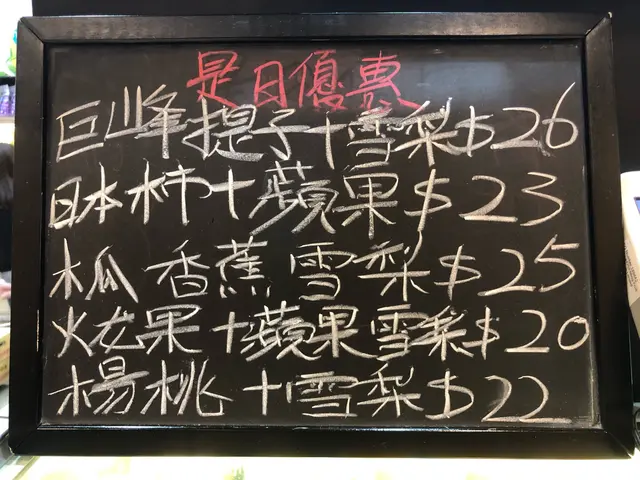 是日優惠
巨峰提子+雪梨$26
日本柿+蘋果$23
木瓜香蕉雪梨$25
火龙果+蘋果雪梨$20
楊桃+雪梨$22